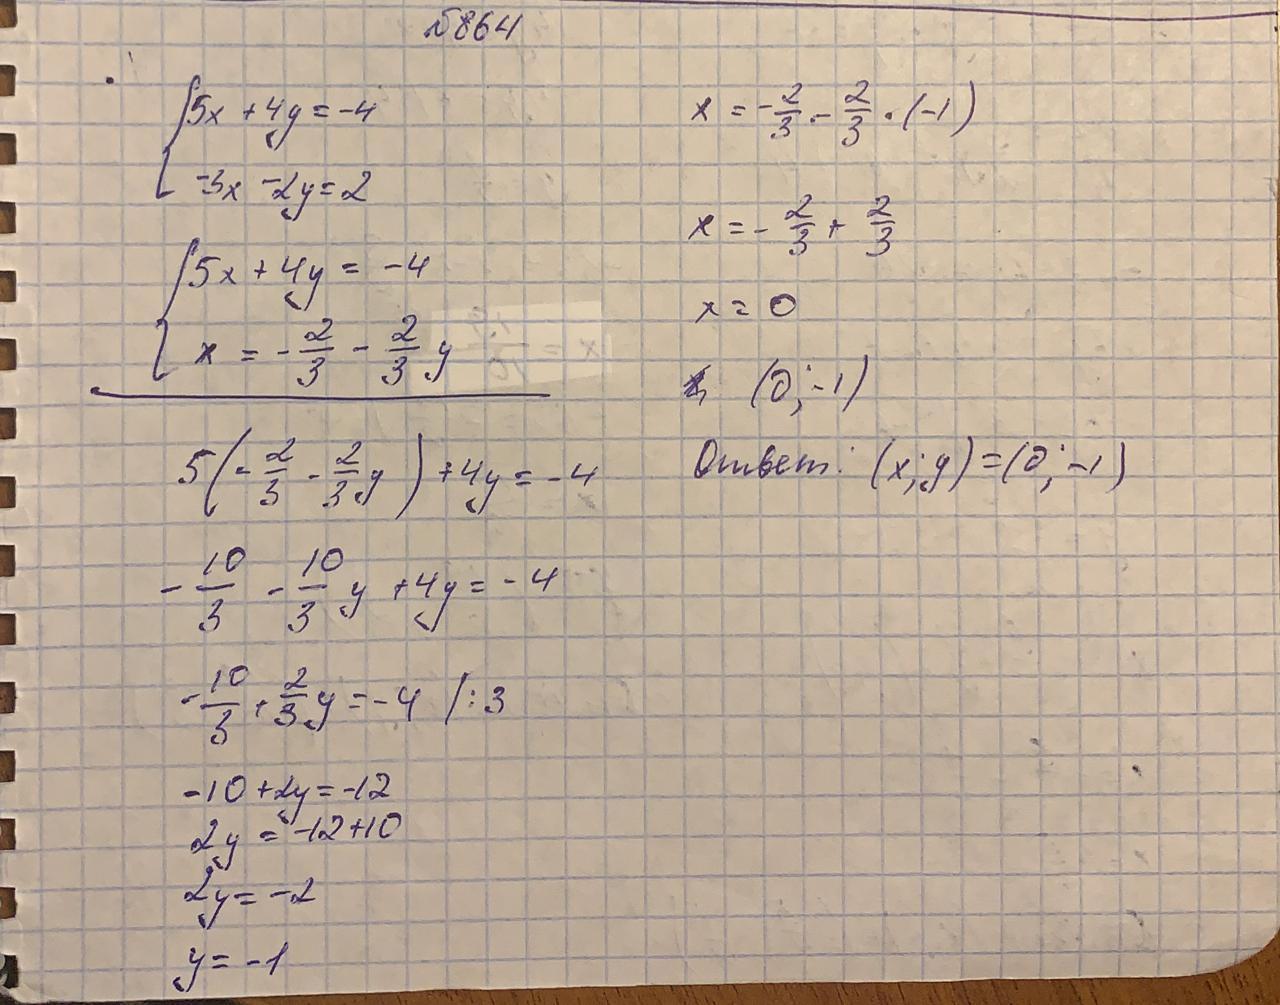 №864
{5x + 4y = -4
-3x - 2y = 2
{5x + 4y = -4
x = -2/3 - 2/3 y
5(-2/3 - 2/3 y) + 4y = -4
-10/3 - 10/3 y + 4y = -4
-10/3 + 2/3 y = -4 /:3
-10 + 2y = -12
2y = -12 + 10
2y = -2
y = -1
x = -2/3 - 2/3 · (-1)
x = -2/3 + 2/3
x = 0
(0; -1)
Ответ: (x; y) = (0; -1)